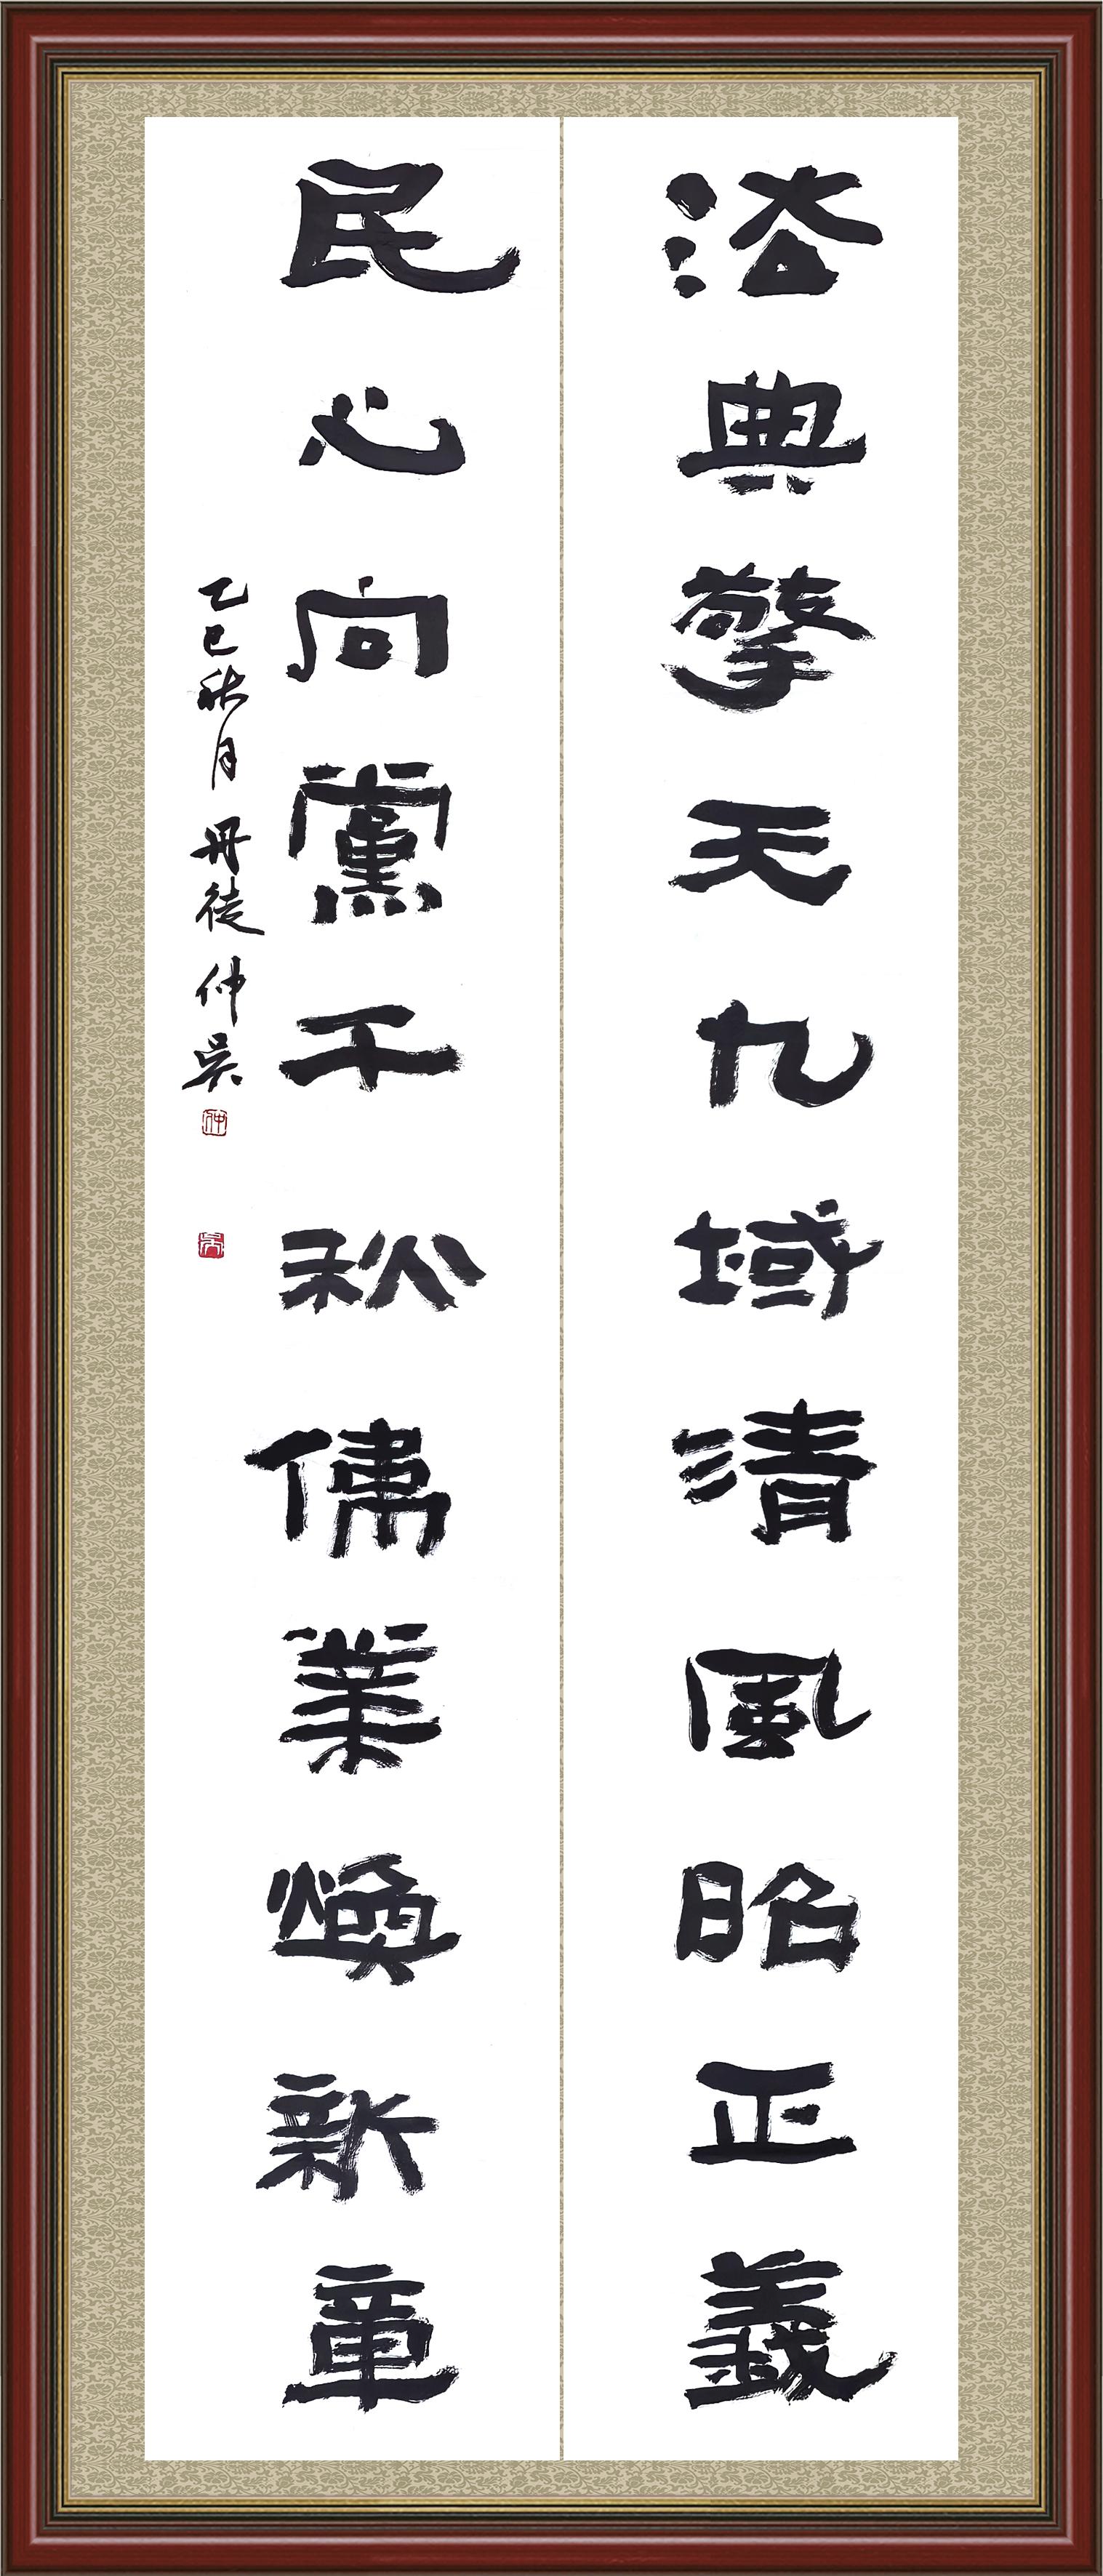 法典擎天九域清風昭正義
民心向黨千秋偉業煥新章
乙巳秋月丹徒仲吳
仲
吳